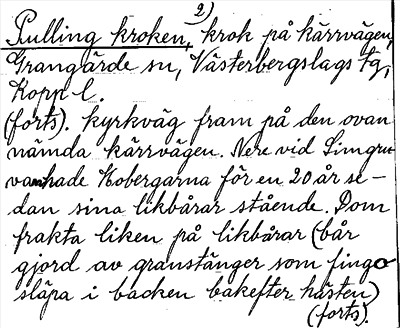 2)
Pulling kroken, krok på kärrvägen,
Grangärde sn, Västerbergslags tg,
Kopp l.
(forts). kyrkväg fram på den ovan
nämda kärrvägen. Nere vid Limgru
van hade Hobergarna för en 20 år se-
dan sina likbårar stående. Dom
frakta liken på likbårar (bår
gjord av granstänger som fingo
släpa i backen bakefter hästen)
(forts).